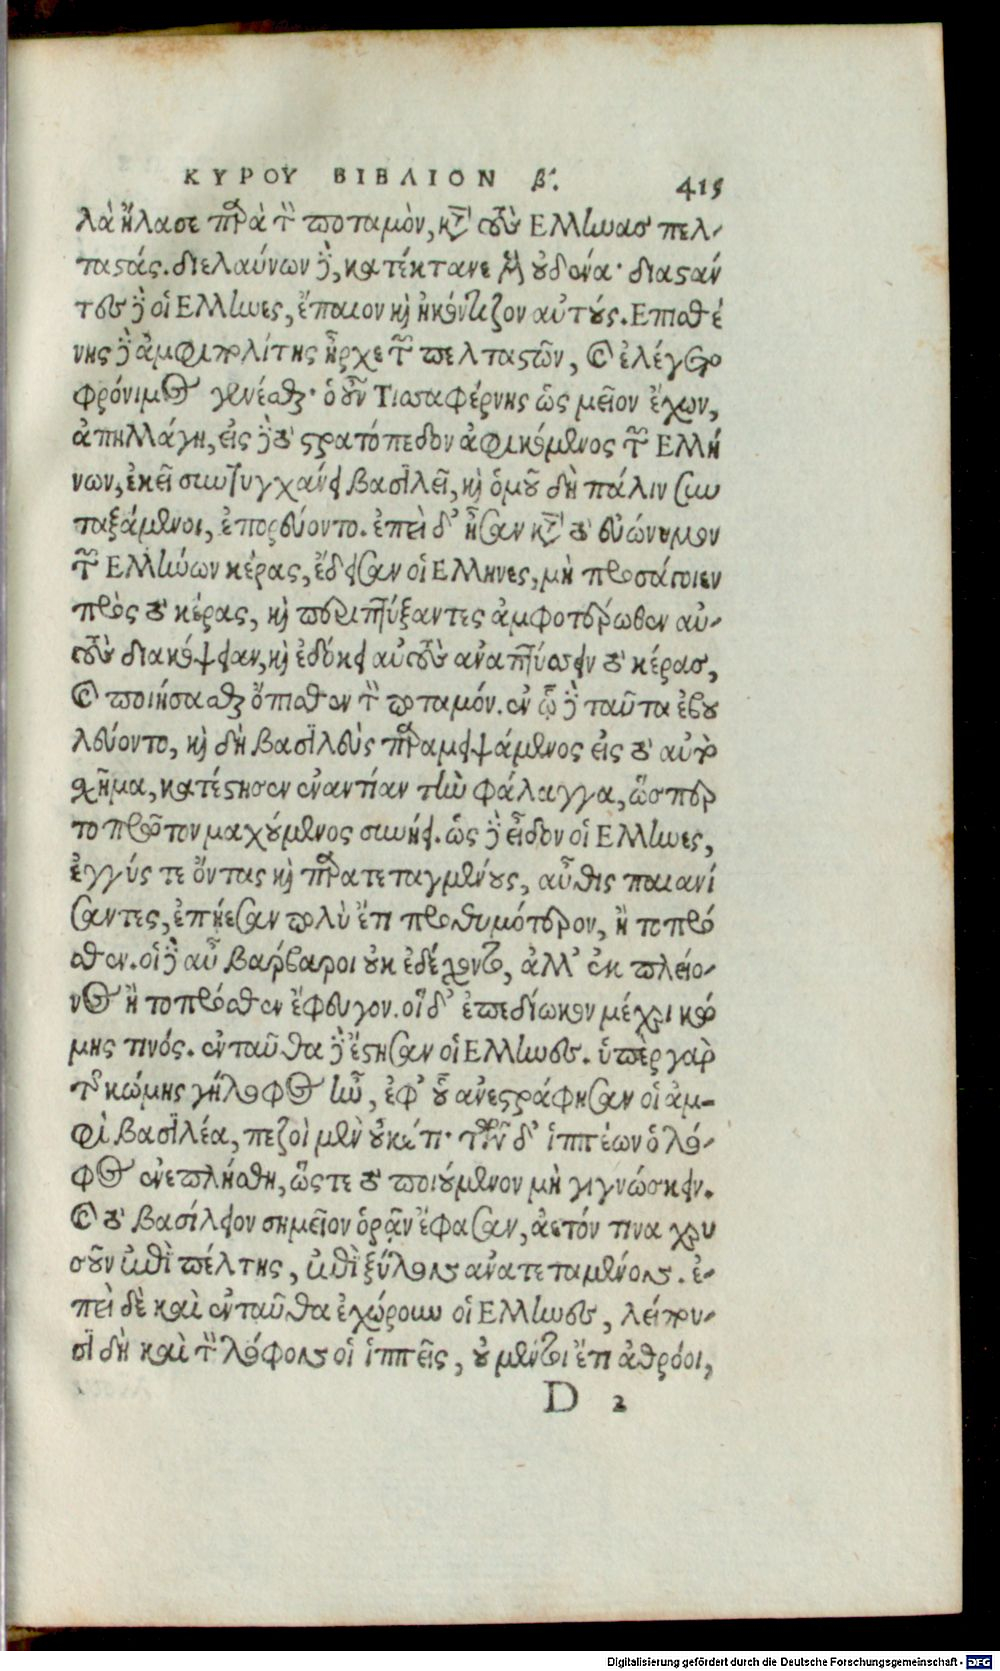 ΚΥΡΟΥ ΒΙΒΛΙΟΝ β΄. 415
λὰ ἤλασε παρὰ τὸν ποταμὸν, κατὰ τοὺς Ελληνασ πελ-
ταστάς. διελαύνων δὲ, κατέκτανε μὲν οὐδένα· διαστάν
τες δὲ οἱ Ελληνες, ἔπαιον καὶ ἠκόντιζον αὐτούς. Επισθέ
νης δὲ ἀμφιπολίτης ἦρχε τῶν πελταστῶν, καὶ ἐλέγετο
φρόνιμος γενέσθαι· ὁ οὖν Τισσαφέρνης ὡς μεῖον ἔχων,
ἀπηλλάγη, εἰς δὲ τὸ στρατόπεδον ἀφικόμενος τῶν Ελλή
νων, ἐκεῖ συντυγχάνει βασιλεῖ, καὶ ὁμοῦ δὴ πάλιν συν
ταξάμενοι, ἐπορεύοντο. ἐπεὶ δ' ἦσαν κατὰ τὸ εὐώνυμον
τῶν Ελλήνων κέρας, ἔδεισαν οἱ Ελληνες, μὴ προσάγοιεν
πρὸς τὸ κέρας, καὶ περιπτύξαντες ἀμφοτέρωθεν αὐ-
τοὺς διακόψειαν, καὶ ἐδόκει αὐτοὺς αναπτύσσειν τὸ κέρασ,
καὶ ποιήσασθαι ὄπισθεν τὸν ποταμόν. ἐν ᾧ δὲ ταῦτα ἐβου
λεύοντο, καὶ δὴ βασιλεὺς παραμειψάμενος εἰς τὸ αὐτὸ
σχῆμα, κατέστησεν ἐναντίαν τὴν φάλαγγα, ὥσπερ
το πρῶτον μαχούμενος συνήει. ὡς δὲ εἶδον οἱ Ελληνες,
ἐγγύς τε ὄντας καὶ παρατεταγμένους, αὖθις παιανί
σαντες, ἐπῄεσαν πολὺ ἔτι προθυμότερον, ἢ τοπρό
σθεν. οἱ δὲ αὖ βαρβαροι οὐκ ἐδέχοντο, ἀλλ' ἐκ πλείο-
νος ἢ τοπρόσθεν ἔφευγον. οἵ δ' ἐπεδίωκον μέχρι κώ
μης τινός. ἐνταῦθα δὲ ἔστησαν οἱ Ελληνες. ὑπὲρ γαρ
τῆς κώμης γήλοφος ἦν, ἐφ' οὗ ανεστράφησαν οἱ ἀμ-
φὶ βασιλέα, πεζοὶ μὲν οὐκέτι· τῶν δ' ἱππέων ὁ λό-
φος ἐνεπλήσθη, ὥστε τὸ ποιούμενον μὴ γιγνώσκειν.
καὶ τὸ βασίλειον σημεῖον ὁρᾷν ἔφασαν, ἀετόν τινα χρυ
σοῦν ἐπὶ πέλτης, ἐπὶ ξύλοις ανατεταμένοις. ἐ-
πεὶ δὲ καὶ ἐνταῦθα ἐχώρουν οἱ Ελληνες, λείπου-
σι δὴ καὶ τὸν λόφον οἱ ἱππεῖς, οὐ μέντοι ἔτι ἀθρόοι,
D 2
Digitalisierung gefördert durch die Deutsche Forschungsgemeinschaft - DFG